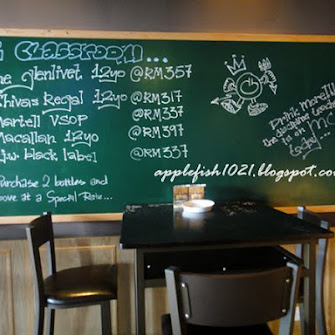 CLASSROOM ...
The glenlivet 12yo @RM357
Chivas Regal 12yo @RM317
Martell VSOP @RM337
Macallan 12yo @RM397
JW black label @RM337
Purchase 2 bottles and
above at a Special Rate...
Drink moral!!
the discipline teacher
is on MC
today
applefish1021.blogspot.com